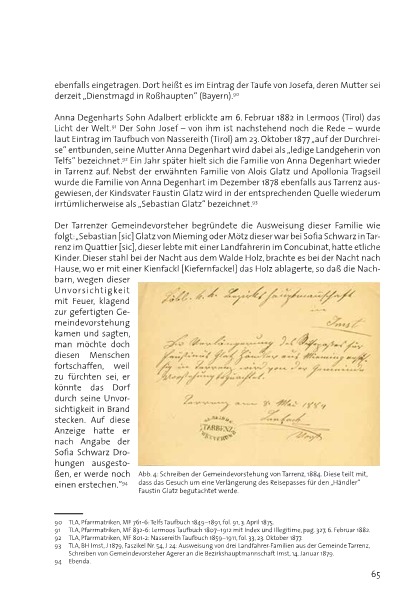 ebenfalls eingetragen. Dort heißt es im Eintrag der Taufe von Josefa, deren Mutter sei
derzeit „Dienstmagd in Roßhaupten“ (Bayern).90
Anna Degenharts Sohn Adalbert erblickte am 6. Februar 1882 in Lermoos (Tirol) das
Licht der Welt.91 Der Sohn Josef – von ihm ist nachstehend noch die Rede – wurde
laut Eintrag im Taufbuch von Nassereith (Tirol) am 23. Oktober 1877 „auf der Durchrei-
se“ entbunden, seine Mutter Anna Degenhart wird dabei als „ledige Landgeherin von
Telfs“ bezeichnet.92 Ein Jahr später hielt sich die Familie von Anna Degenhart wieder
in Tarrenz auf. Nebst der erwähnten Familie von Alois Glatz und Apollonia Tragseil
wurde die Familie von Anna Degenhart im Dezember 1878 ebenfalls aus Tarrenz aus-
gewiesen, der Kindsvater Faustin Glatz wird in der entsprechenden Quelle wiederum
irrtümlicherweise als „Sebastian Glatz“ bezeichnet.93
Der Tarrenzer Gemeindevorsteher begründete die Ausweisung dieser Familie wie
folgt: „Sebastian [sic] Glatz von Mieming oder Mötz dieser war bei Sofia Schwarz in Tar-
renz im Quattier [sic], dieser lebte mit einer Landfahrerin im Concubinat, hatte etliche
Kinder. Dieser stahl bei der Nacht aus dem Walde Holz, brachte es bei der Nacht nach
Hause, wo er mit einer Kienfackl [Kiefernfackel] das Holz ablagerte, so daß die Nach-
barn, wegen dieser
Unvorsichtigkeit
mit Feuer, klagend
zur gefertigten Ge-
meindevorstehung
kamen und sagten,
man möchte doch
diesen Menschen
fortschaffen, weil
zu fürchten sei, er
könnte das Dorf
durch seine Unvor-
sichtigkeit in Brand
stecken. Auf diese
Anzeige hatte er
nach Angabe der
Sofia Schwarz Dro-
hungen ausgesto-
ßen, er werde noch
einen erstechen.“94
Imst
Tarrenz am 8. Mai 1884
TARRENZ
Abb. 4: Schreiben der Gemeindevorstehung von Tarrenz, 1884. Diese teilt mit,
dass das Gesuch um eine Verlängerung des Reisepasses für den „Händler“
Faustin Glatz begutachtet werde.
90 TLA, Pfarrmatriken, MF 761-6: Telfs Taufbuch 1849–1891, fol. 91, 3. April 1875.
91 TLA, Pfarrmatriken, MF 832-6: Lermoos Taufbuch 1807–1912 mit Index und Illegitime, pag. 327, 6. Februar 1882.
92 TLA, Pfarrmatriken, MF 801-2: Nassereith Taufbuch 1859–1911, fol. 33, 23. Oktober 1877.
93 TLA, BH Imst, J 1879, Faszikel Nr. 54, J 24: Ausweisung von drei Landfahrer-Familien aus der Gemeinde Tarrenz,
Schreiben von Gemeindevorsteher Agerer an die Bezirkshauptmannschaft Imst, 14. Januar 1879.
94 Ebenda.
65